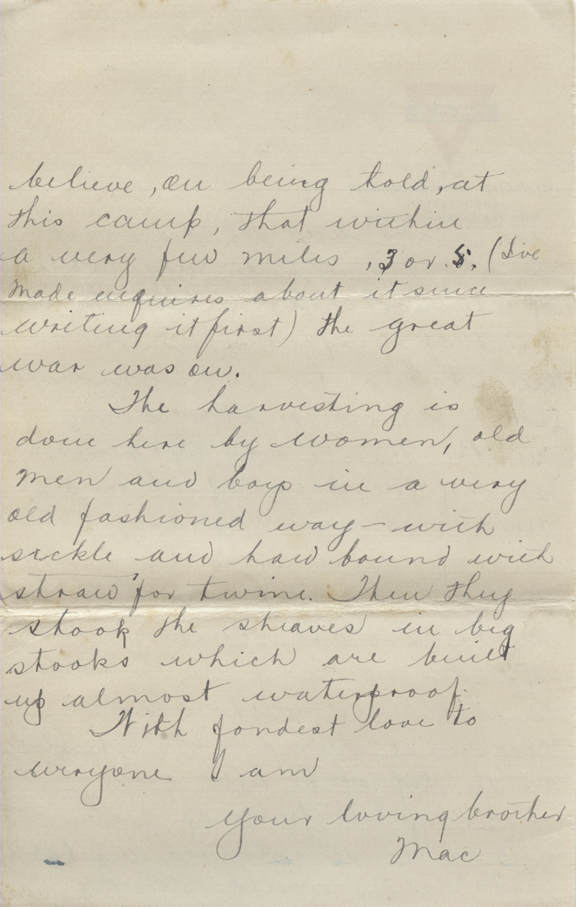 believe, on being told, at
this camp, that within
a very few miles, 3 or 5. (I've
made enquires about it since
writing it first) the great
war was on.
The harvesting is
done here by women, old
men and boys in a very
old fashioned way - with
sickle and han bound with
straw for twine. Then they
stook the sheaves in big
stooks which are built
up almost waterproof.
With fondest love to
everyone I am
your loving brother
Mac